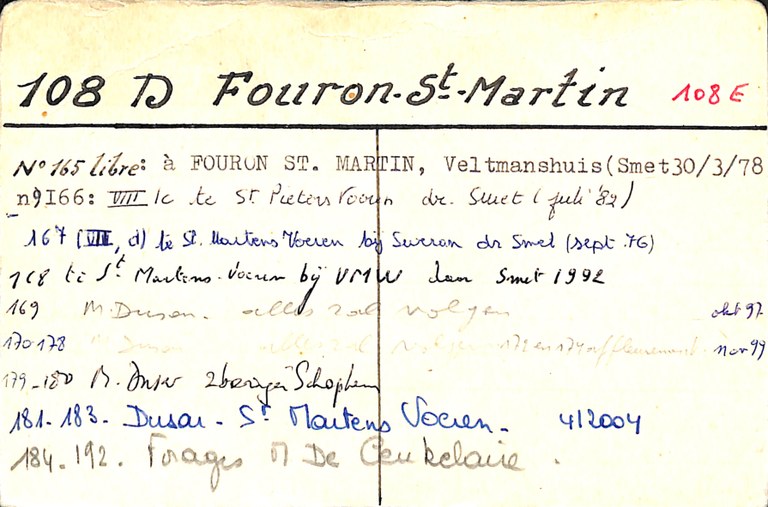 108 D Fouron-St-Martin 108 E
N° 165 libre: à FOURON ST. MARTIN, Veltmanshuis(Smet30/3/78
n°I66: VIII Ic te St Pieters Voeren dr. Smet (juli '82)
167 (VIII, d) te St. Martens Voeren bij dr Smet (sept. 76)
168 te St Martens-Voeren bij VMW door Smet 1992
169 M. Dusar. alles zal volgen okt 97
170-178 M Dusar alles zal volgen 172 en 174 affleurement nov 99
179-180 M. Dusar 2 boringen Schophem
181-183. Dusar - St Martens Voeren. 4/2004
184-192. Forages M De Ceukelaire.